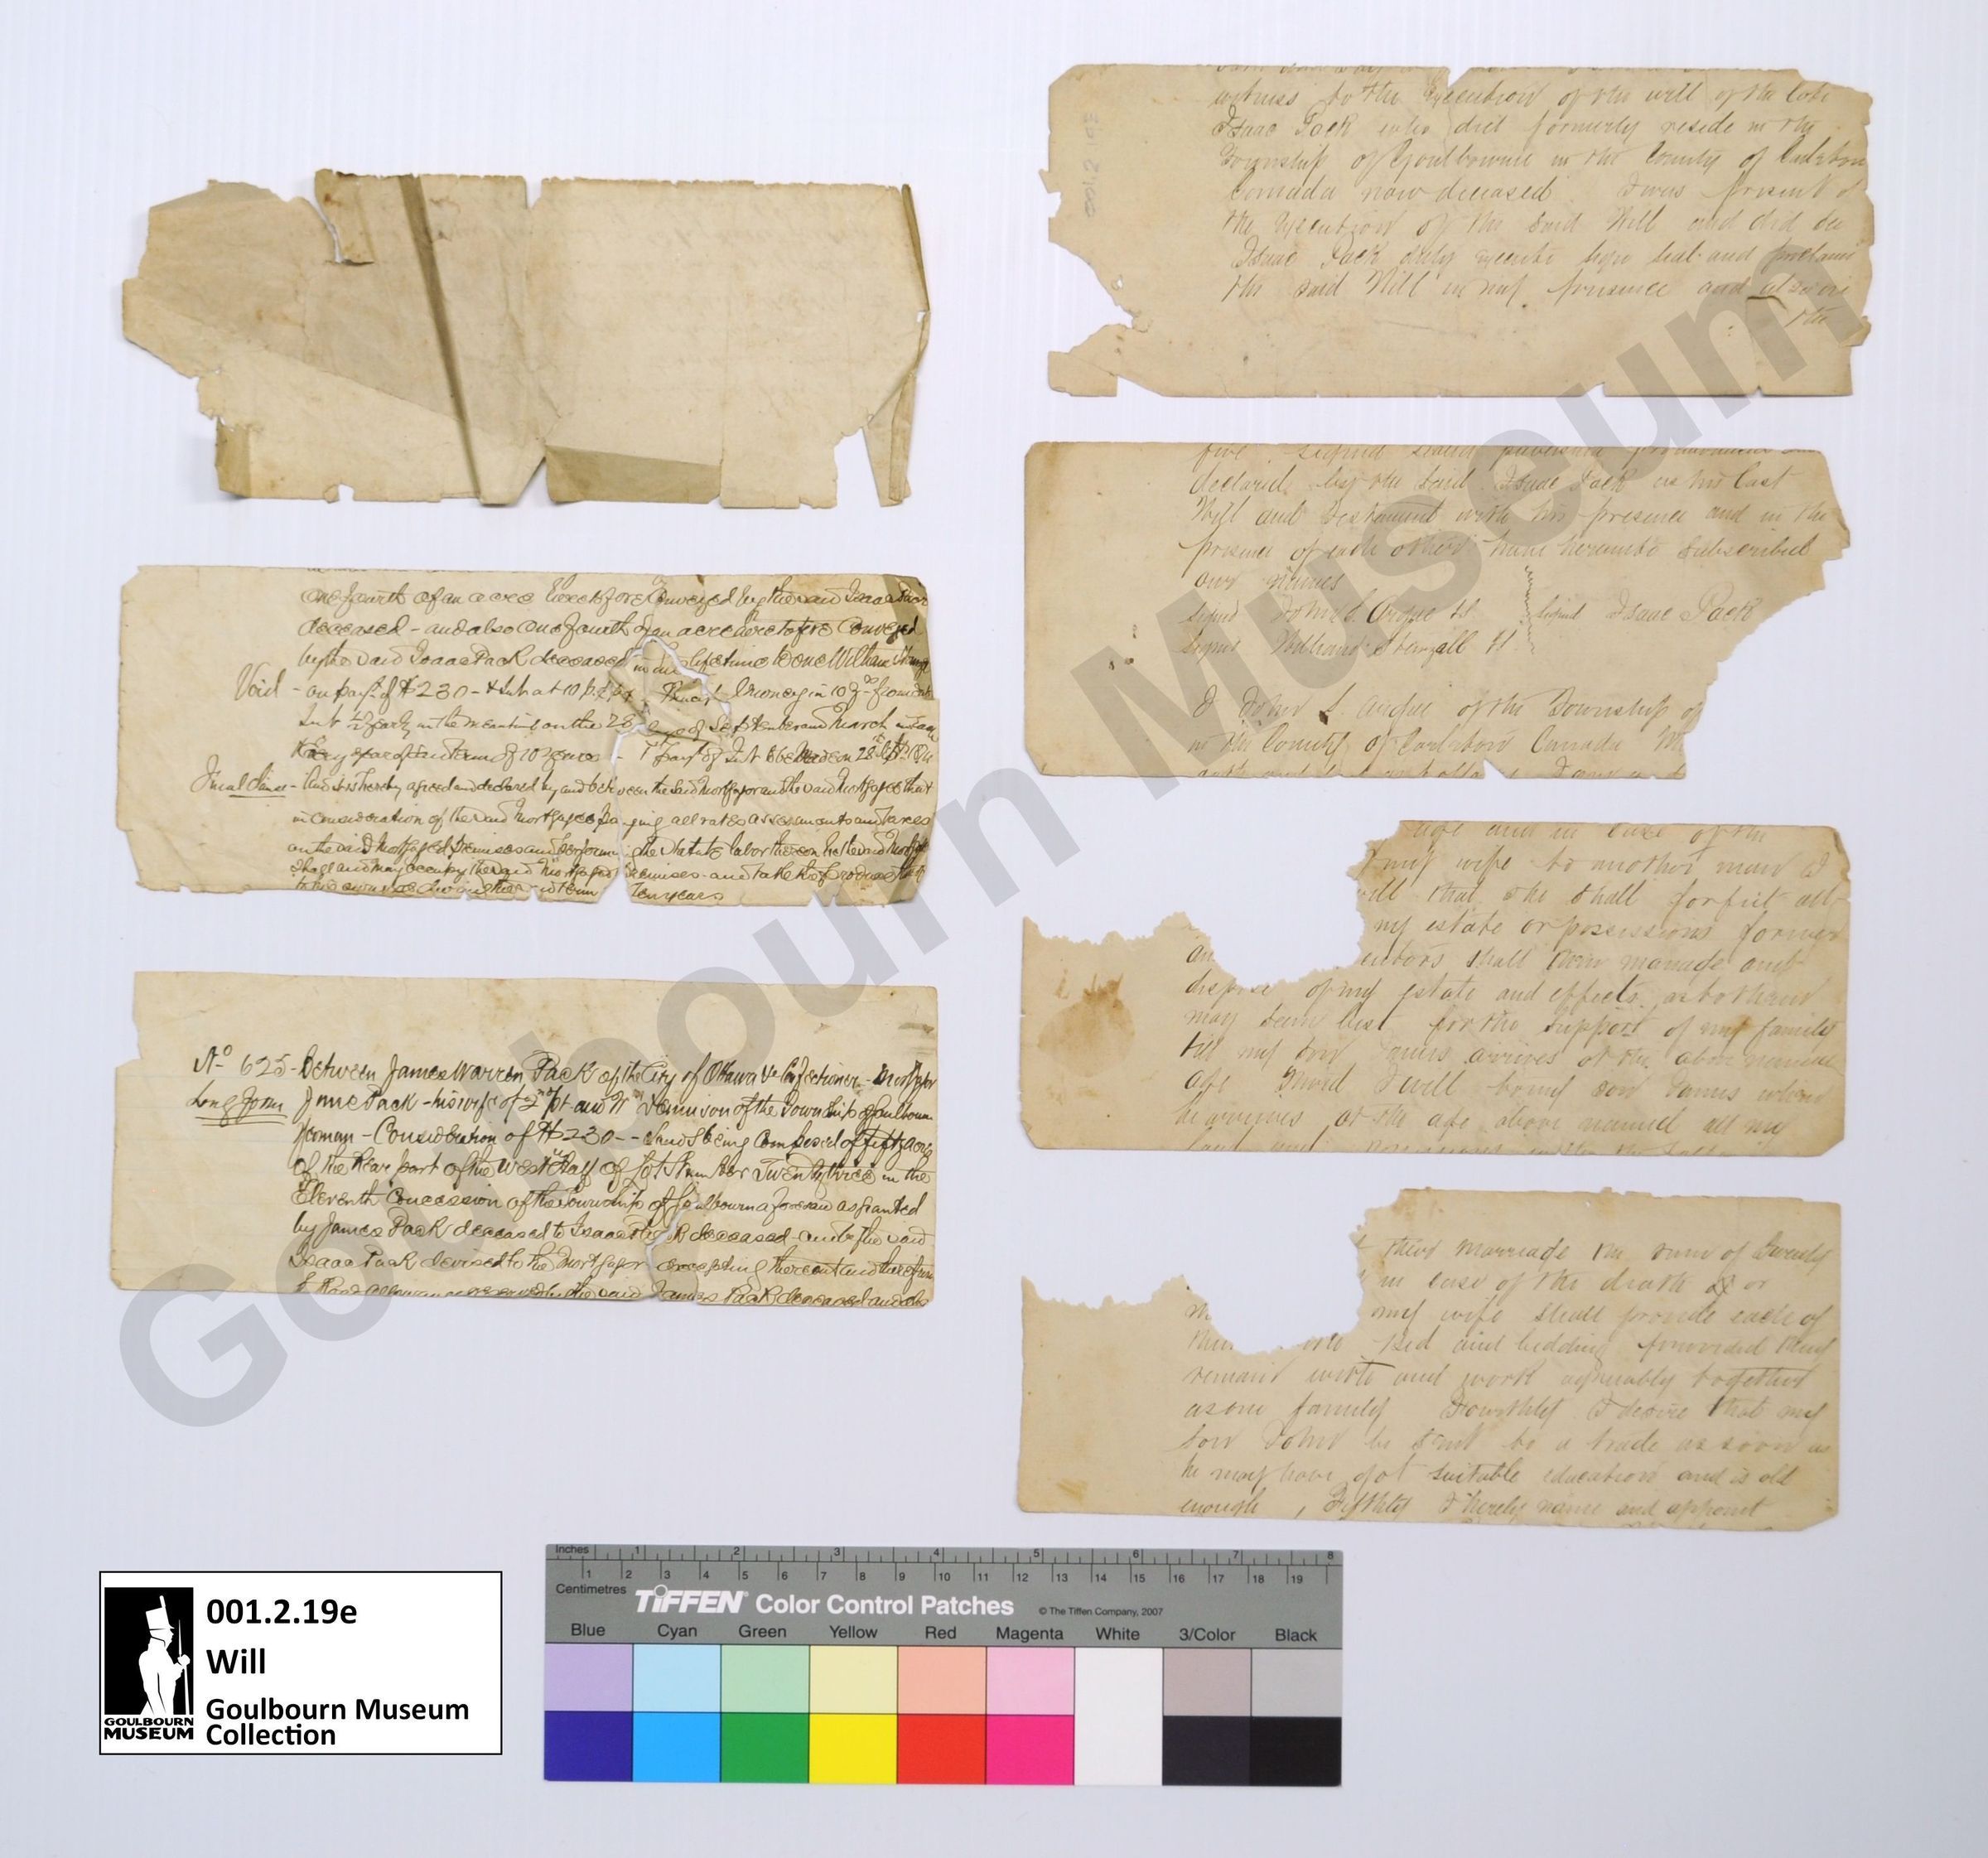 one fourth of an acre heretofore Conveyed by the said Isaac Pack
deceased - and also one fourth of an acre heretofore Conveyed
by the said Isaac Pack deceased in his lifetime to one William
Void - on payt. of $230 - & Int at 10 p. in 10 from
Int ½ yearly in the meantime on the 28 of September and March in
every year of said term of 10 years - 1st payt of Int to be made on 28
Final Clause - And it is hereby agreed and declared by and between the said Mortgagor and the said Mortgagee that
in consideration of the said Mortgagee paying all rates assessments and Taxes
on the said Mortgaged Premises and performing the Statute labor thereon he the said
shall and may occupy the said Mortgaged Premises - and take the produce
to his own use during the said term Ten years
No 625 - Between James Warren Pack of the City of Ottawa Confectioner - Mortgagor
Long Form Jane Pack - his wife of 2nd Pt. and Wm Dennison of the Township of Goulbourn
Yeoman - Consideration of $230 - - Lands being Composed of fifty acres
of the Rear part of the West Half of Lot Number Twenty three in the
Eleventh Concession of the Township of Goulbourn aforesaid as granted
by James Pack deceased to Isaac Pack deceased - and by the said
Isaac Pack devised to the Mortgagor excepting thereout and therefrom
by the said James Pack deceased and also
witness to the Execution of the will of the late
Isaac Pack who did formerly reside in the
Township of Goulbourne in the County of Carleton
Canada now deceased I was present at
the execution of the said Will and did see
Isaac Pack duly execute sign seal and proclaim
the said Will in my presence and also in
the
five signed sealed published pronounced and
declared by the said Isaac Pack as his last
Will and Testament with his presence and in the
presence of each other have hereunto subscribed
our names
signed John S. Argue signed Isaac Pack
signed William
I John S. Argue of the Township of
in the County of Carleton Canada
age and in case of the
my wife to another man I
will that she shall forfeit all
my estate or possessions former
an entors shall then manage and
dispose of my estate and effects as to them
may seem best for the support of my family
till my son James arrives at the above named
age Third I will to my son James when
he arrives at the age above named all my
their marriage the sum of twenty
in case of the death or
my wife shall provide each of
bed and bedding provided they
remain with and work agreeably together
as one family Fourthly I desire that my
son John be sent to a trade as soon as
he may have got suitable education and is old
enough , Fifthly I hereby name and appoint
Goulbourn Museum
001.2.19e
Will
Goulbourn Museum
Collection
GOULBOURN
MUSEUM
Inches 1 2 3 4 5 6 7 8
1 2 3 4 5 6 7 8 9 10 11 12 13 14 15 16 17 18 19
Centimetres
TIFFEN Color Control Patches © The Tiffen Company, 2007
Blue Cyan Green Yellow Red Magenta White 3/Color Black